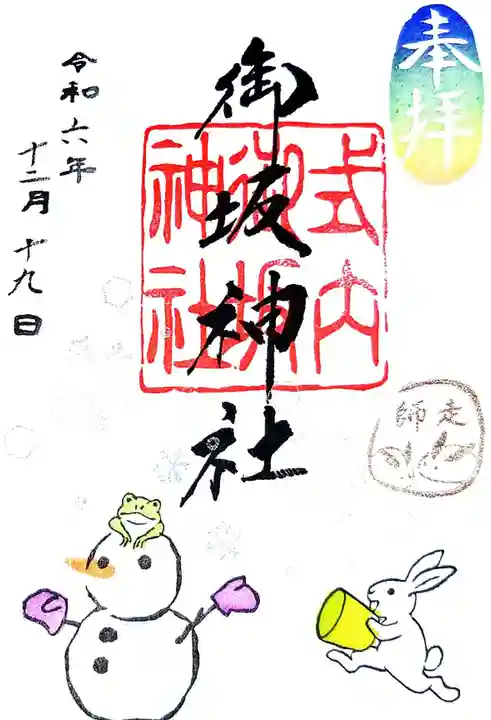 奉拝
御坂神社
式内
御坂
神社
走師
令和六年
十二月十九日